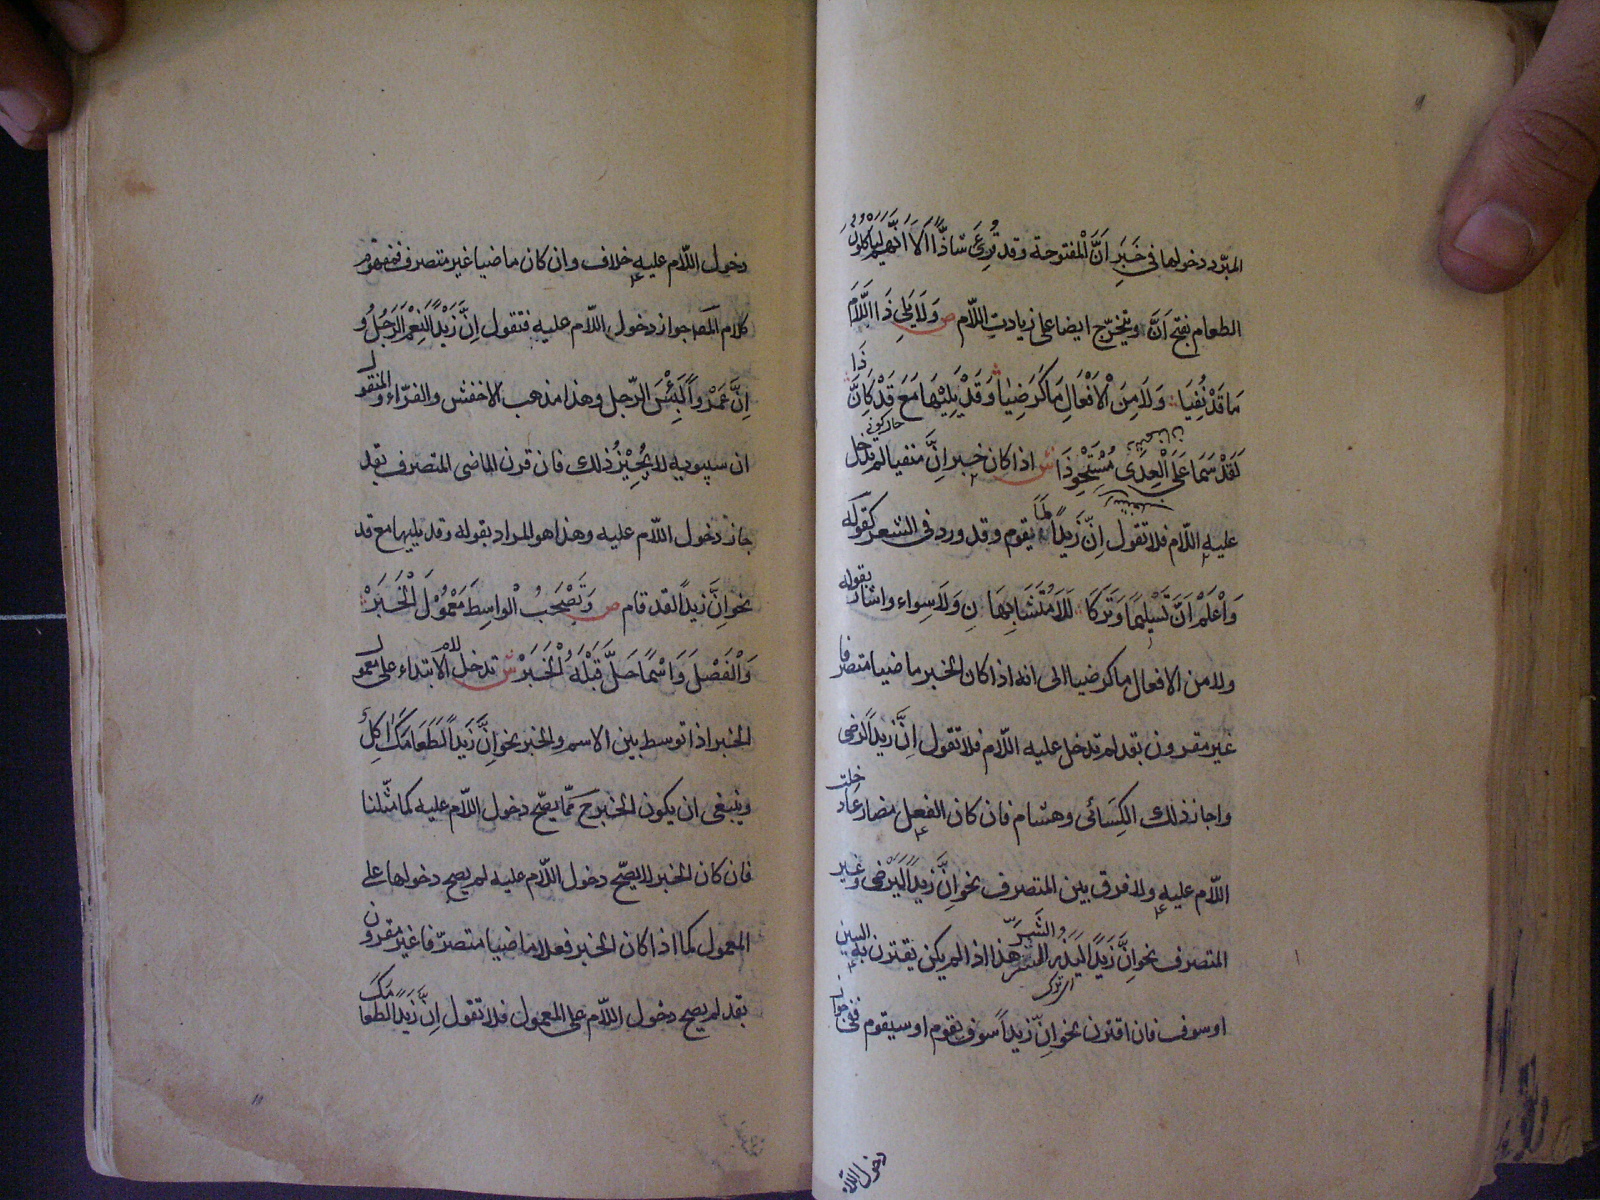 المبرّد دخولها فى خَبَرِ اَنَّ الْمفتوحة وقد قُرِئَ شاذًّا اَلَا اَنَّهُمْ لَيَاْكُلُونَ
الطعام بفتح اَنَّ ويتخرّج ايضا على زيادت اللّام ص وَلَا يَلِى ذَا اللَّامَ
مَا قَدْ نُفِيَا وَلَا مِنَ الْاَفْعَالِ مَا كَرَضِيَا وَقَدْ يَلِيْهَا مَعَ قَدْ كَاِنَّ ذَا
لَقَدْ سَمَا عَلَى الْعِدَى مُسْتَحْوِذَا ش اذا كان خبر اِنَّ منفيا لم تدخل
عليه اللّام فلا تقول اِنّ زَيداً لَمَا يقوم وقد ورد فى الشعر كقوله
وَاَعْلَمُ اَنَّ تَسْلِيمًا وَتَركًا لَلَا مُتَشَابِهَانِ وَلَا سِواء واشار بقوله
ولا من الافعال ما كرضيا الى انه اذا كان الخبر ماضيا متصرفا
غير مقرون بقد لم تدخل عليه اللّام فلا تقول اِنَّ زيداً لرضى
واجاز ذلك الكِسَائى وهشام فان كان الفعل مضارعا دخلت
اللّام عليه ولا فرق بين المتصرف نحو اِنَّ زيداً لَيَرْضى وغير
المتصرف نحو اِنَّ زَيدًا لَيَذَر الشَرَّ هذا اذا لم يكن يقترن به السين
او سوف فان اقترن نحو اِنّ زيداً سوف يقوم او سيقوم ففى جواز
دخول اللّام
دخول اللّام عليه خلاف وان كان ماضيا غير متصرف فمفهوم
كلام المصـ جواز دخول اللّام عليه فتقول اِنَّ زَيْدًا لَنِعْمَ الرَّجُلُ و
اِنَّ عَمْرواً لَبِئْسَ الرّجل وهذا مذهب الاخفش والفرّاء والمنقول
ان سيبويه لا يُجِيْزُ ذلك فان قرن الماضى المتصرف بقد
جاز دخول اللّام عليه وهذا هو المراد بقوله وقد يليها مع قد
نحو اِنَّ زيداً لقد قام ص وَتَصْحَبُ الْواسِطَ مَعْمُوْلَ الْخَبَرْ
وَالْفَصْلَ وَاسْمًا حَلَّ قَبْلَهُ الْخَبَرْ ش تدخل لام الابتداء على معمول
الخبر اذا توسط بين الاسم والخبر نحو اِنَّ زَيداً لَطَعَامَكَ اٰكِلٌ
وينبغى ان يكون الخبر ح ممّا يصّح دخول اللّام عليه كما مثّلنا
فان كان الخبر لا يصّح دخول اللّام عليه لم يصح دخولها على
المعمول كما اذا كان الخبر فعلا ماضيا متصرّفا غير مقرون
بقد لم يصح دخول اللّام على المعمول فلا تقول اِنَّ زَيداً لَطعامَكَ